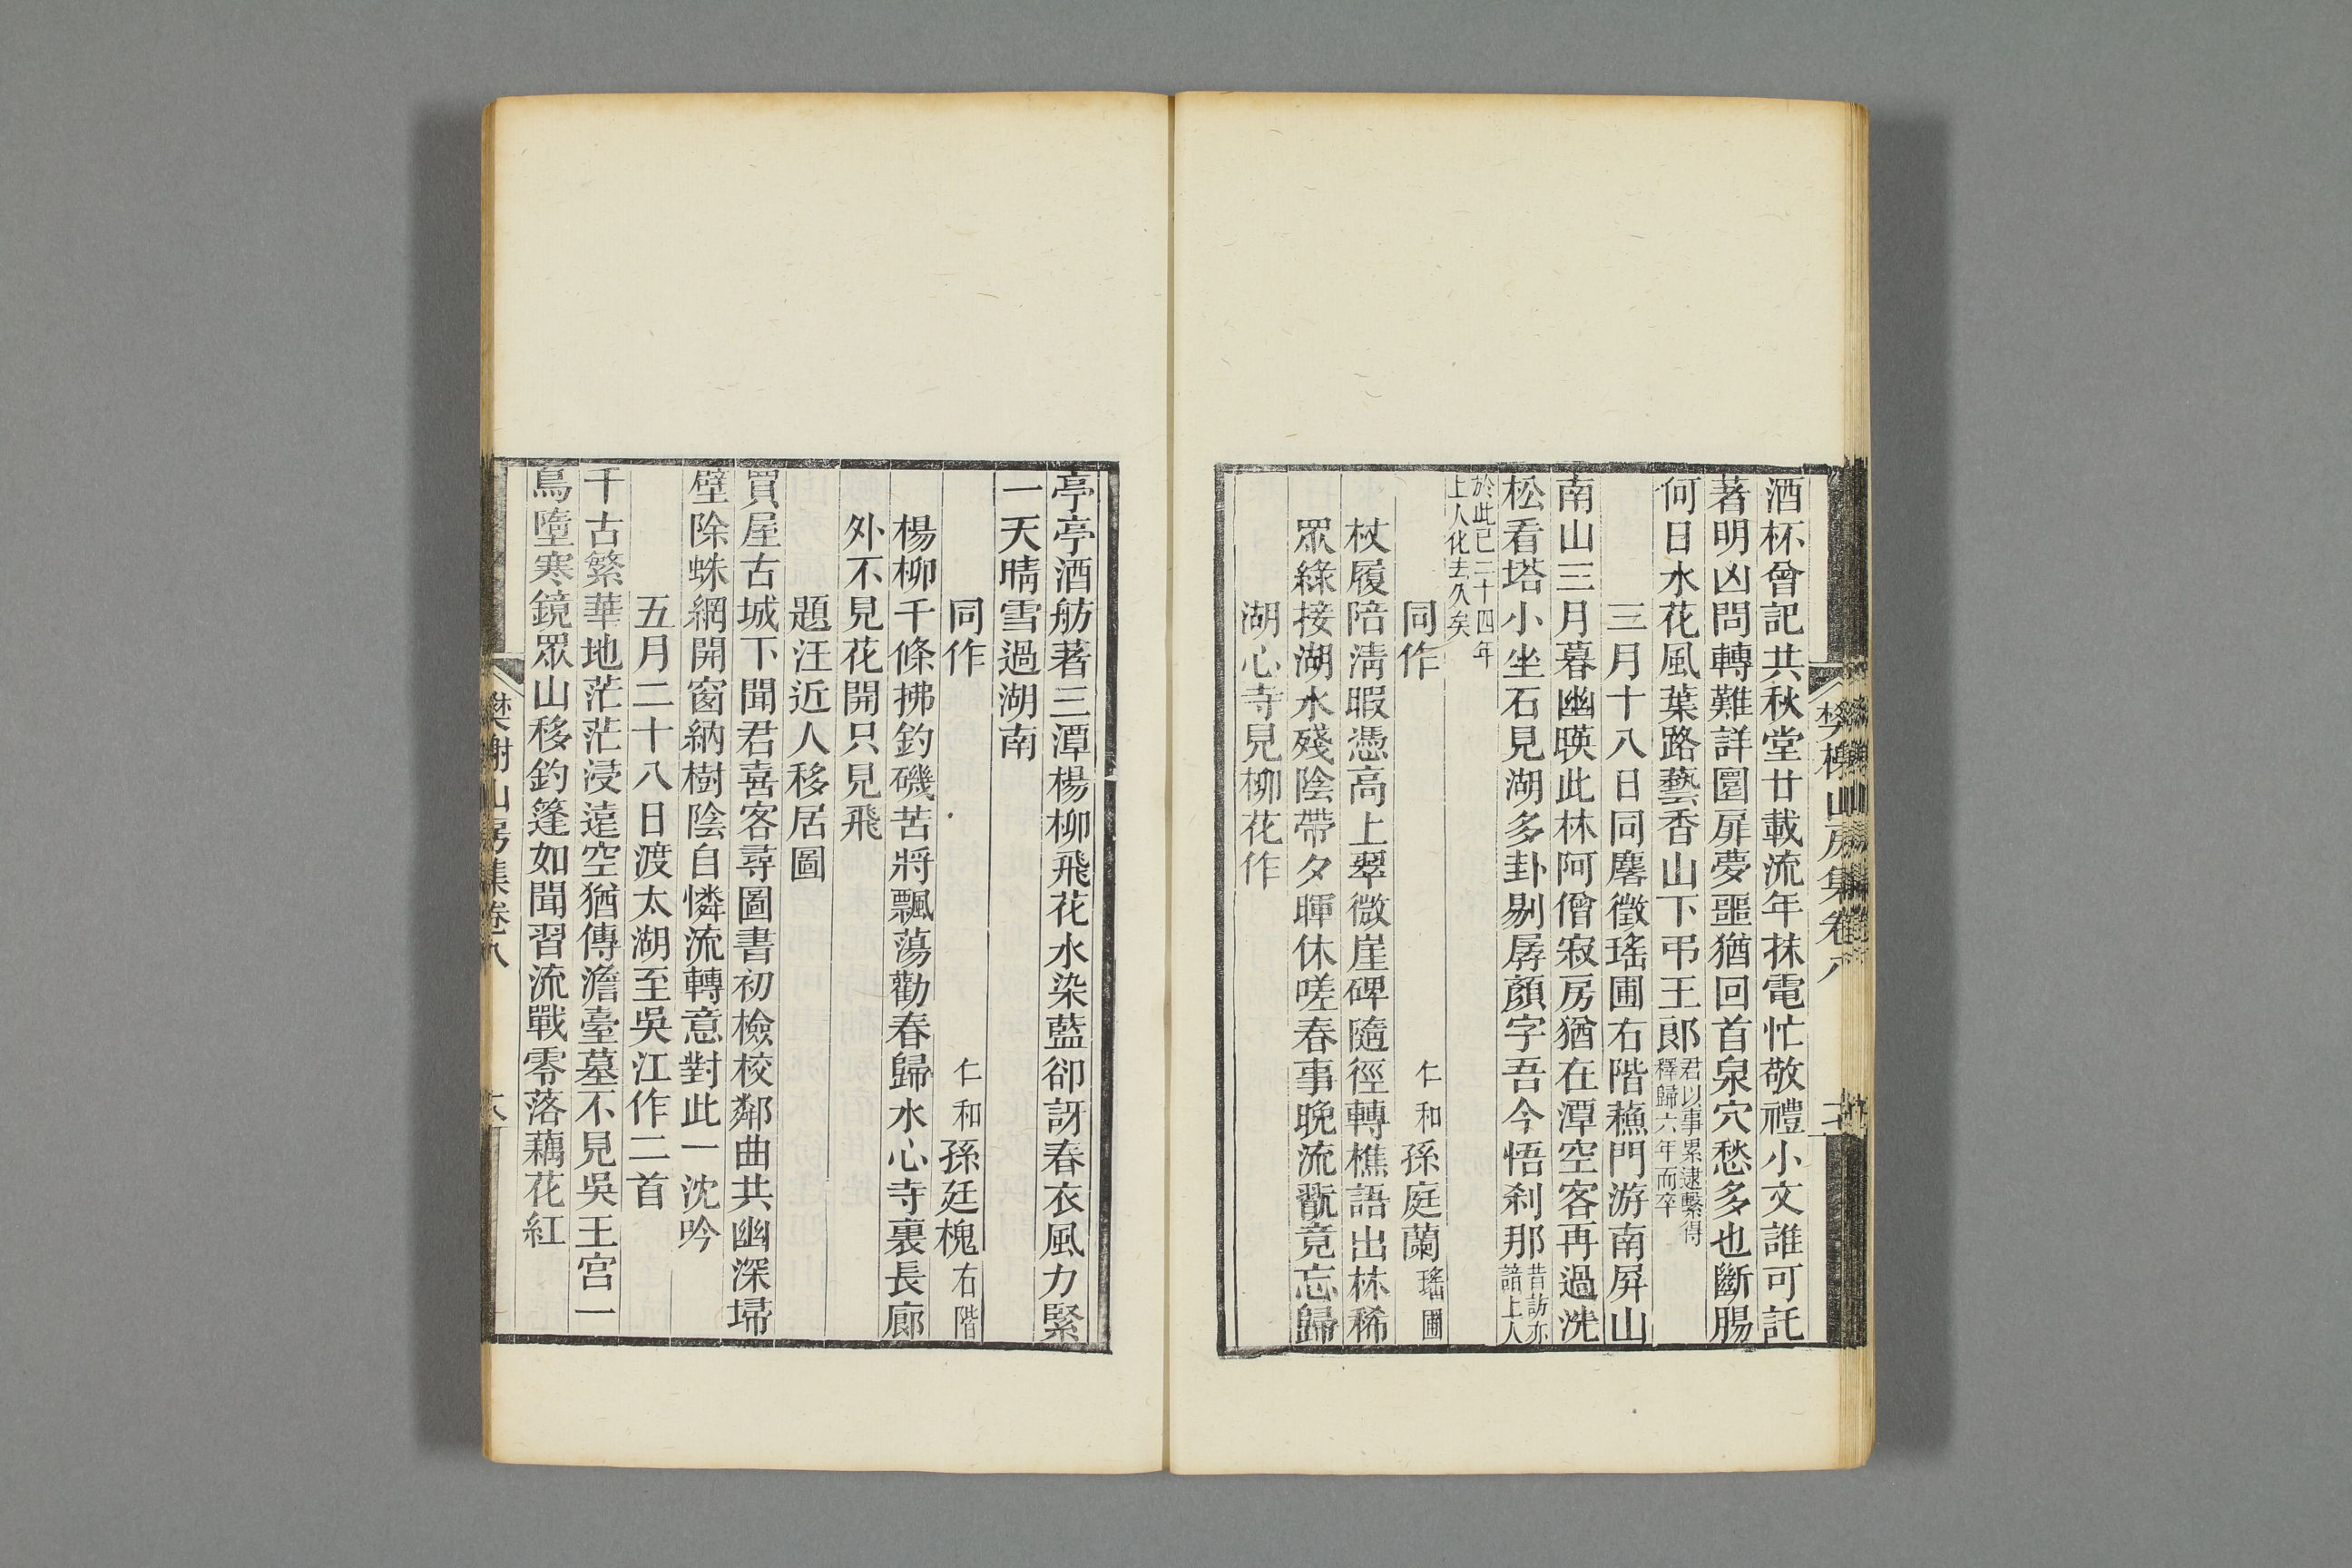 酒杯曾記共秋堂廿載流年抹電忙敬禮小文誰可託
著明凶問轉難詳圜扉夢噩猶回首泉穴愁多也斷腸
何日水花風葉路藝香山下弔王郎君以事累逮繫得釋歸六年而卒
三月十八日同麐徵瑤圃右階蘓門游南屏山
南山三月暮幽暎此林阿僧寂房猶在潭空客再過洗
松看塔小坐石見湖多卦剔孱顏字吾今悟刹那昔訪亦諳上人
於此已二十四年上人化去久矣
同作
仁和孫庭蘭瑤圃
杖履陪淸暇憑高上翠微崖碑隨徑轉樵語出林稀
眾綠接湖水殘陰帶夕暉休嗟春事晚流翫竟忘歸
湖心寺見柳花作
樊榭山房集卷八
亭亭酒舫著三潭楊柳飛花水染藍卻訝春衣風力緊
一天晴雪過湖南
同作
仁和孫廷槐右階
楊柳千條拂釣磯苦將飄蕩勸春歸水心寺裏長廊
外不見花開只見飛
題汪近人移居圖
買屋古城下聞君喜客尋圖書初檢校鄰曲共幽深埽
壁除蛛網開窗納樹陰自憐流轉意對此一沈吟
五月二十八日渡太湖至吳江作二首
千古繁華地茫茫浸遠空猶傳澹臺墓不見吳王宮一
鳥墮寒鏡眾山移釣篷如聞習流戰零落藕花紅
樊榭山房集卷八